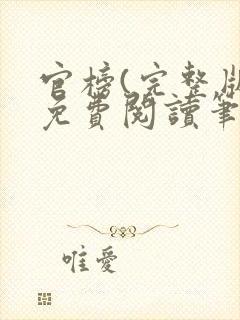 官榜(完整版
免費閱讀筆
唯愛